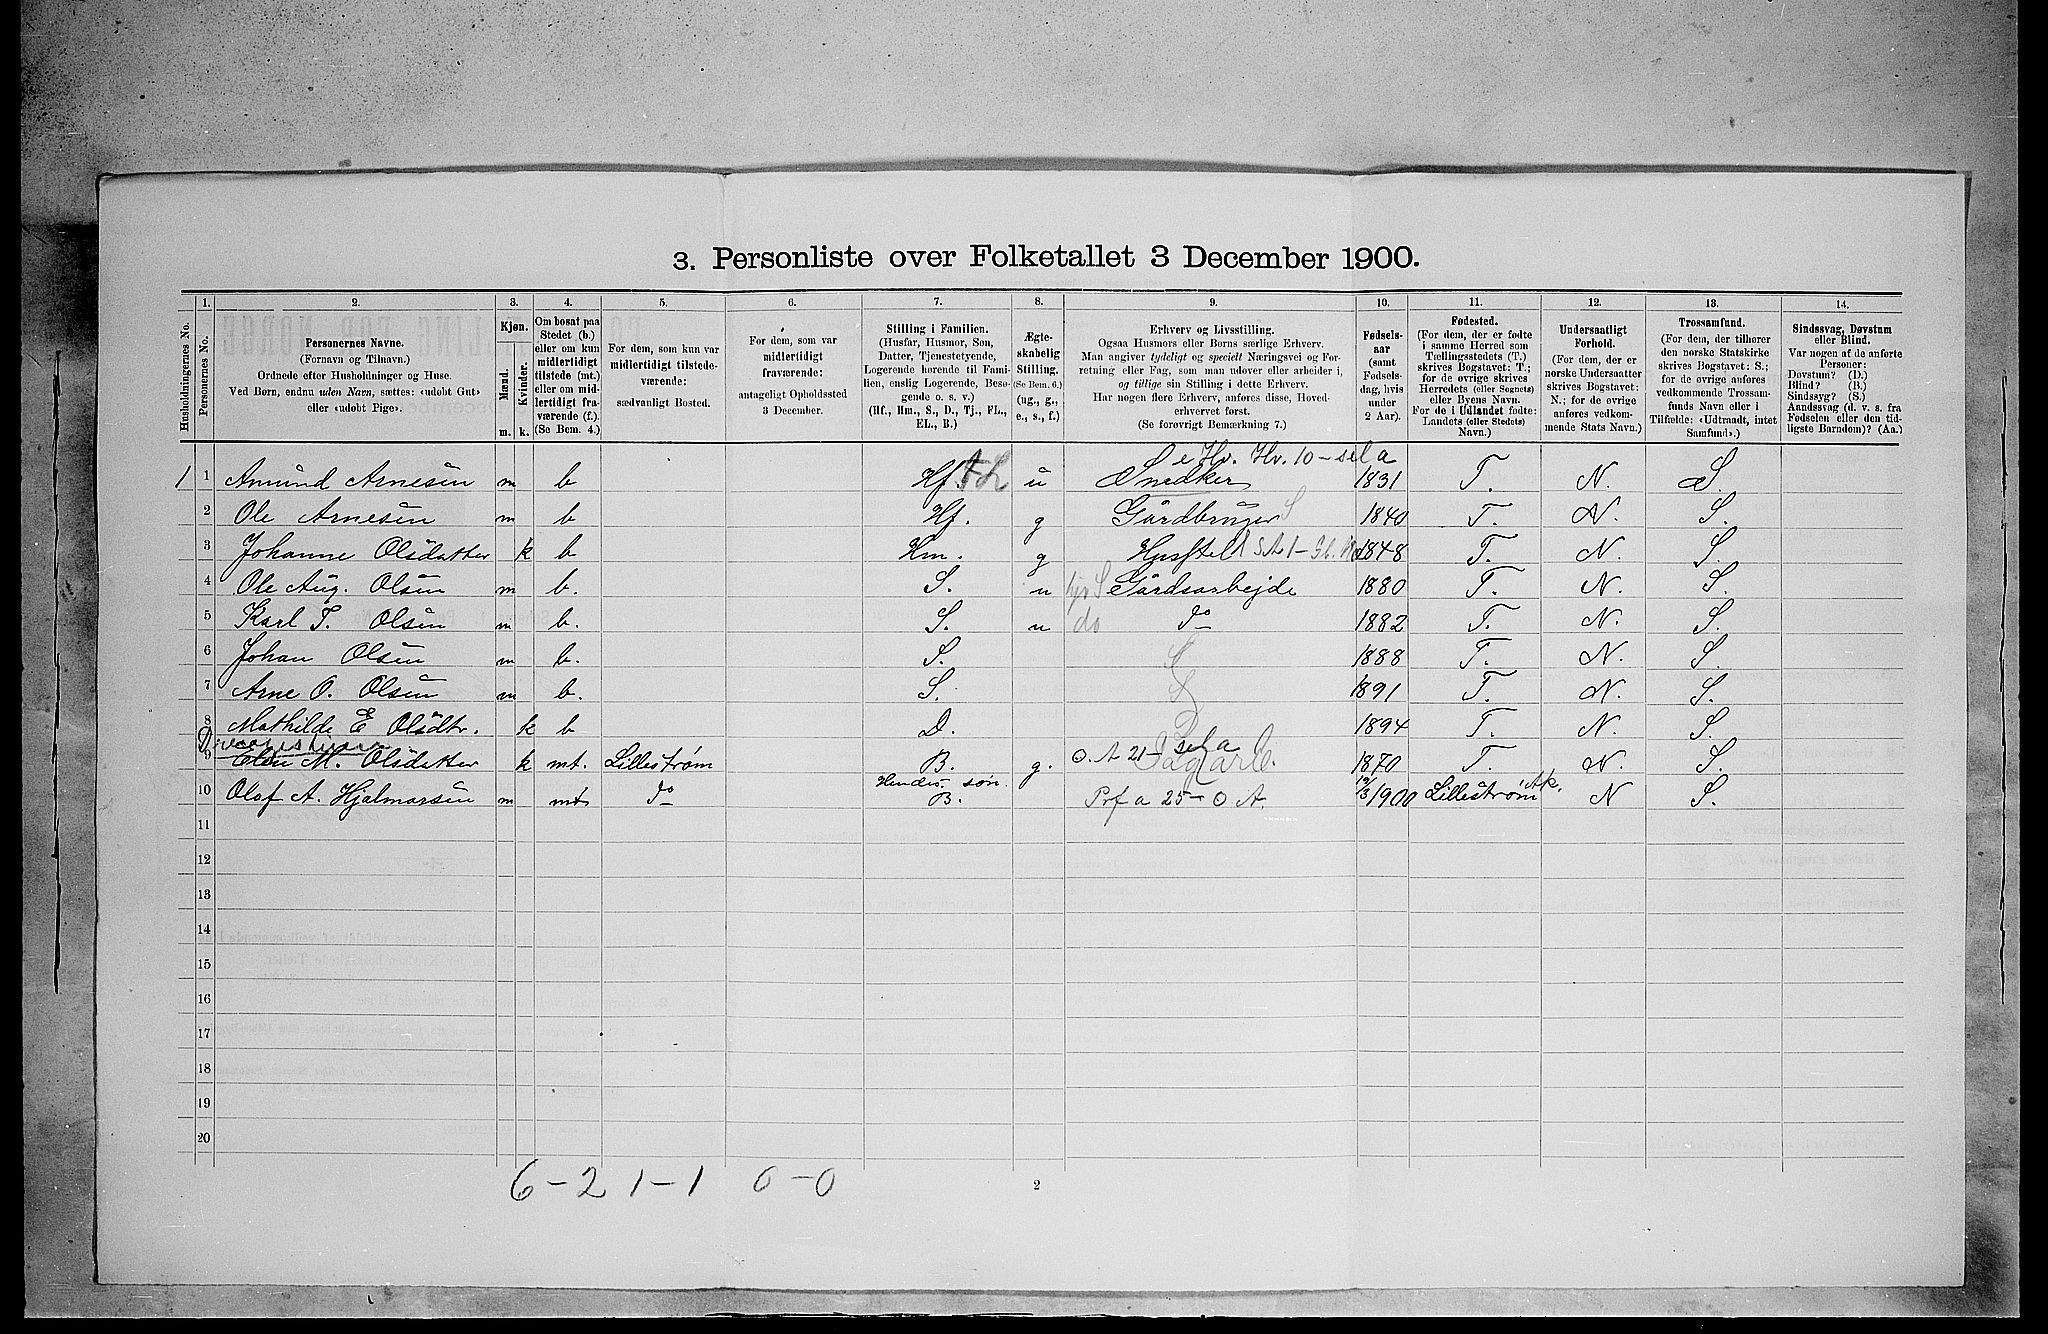 3. Personliste over Folketallet 3 December 1900.
1. 2. 3. 4. 5. 6. 7. 8. 9. 10. 11. 12. 13. 14.
Husholdningernes No.
Personernes No.
Personernes Navne.
(Fornavn og Tilnavn.)
Ordnede efter Husholdninger og Huse.
Ved Børn, endnu uden Navn, sættes: «udøbt Gut»
eller «udøbt Pige».
Kjøn.
Mænd.
Kvinder.
m. k.
Om bosat paa
Stedet (b.)
eller om kun
midlertidigt
tilstede (mt.)
eller om mid-
lertidigt fra-
værende (f.).
(Se Bem. 4.)
For dem, som kun var
midlertidigt tilstede-
værende:
sædvanligt Bosted.
For dem, som var
midlertidigt
fraværende:
antageligt Opholdssted
3 December.
Stilling i Familien.
(Husfar, Husmor, Søn,
Datter, Tjenestetyende,
Logerende hørende til Fami-
lien, enslig Logerende, Besø-
gende o. s. v.)
(Hf., Hm., S., D., Tj., FL.,
EL., B.)
Ægte-
skabelig
Stilling.
(Se Bem. 6.)
(ug., g.,
e., s., f.)
Erhverv og Livsstilling.
Ogsaa Husmors eller Børns særlige Erhverv.
Man angiver tydeligt og specielt Næringsvei og For-
retning eller Fag, som man udøver eller arbeider i,
og tillige sin Stilling i dette Erhverv.
Har nogen flere Erhverv, anføres disse, Hoved-
erhvervet først.
(Se forøvrigt Bemærkning 7.)
Fødsels-
aar
(samt
Fødsels-
dag, hvis
under
2 Aar).
Fødested.
(For dem, der er fødte
i samme Herred som
Tællingsstedets (T.)
skrives Bogstavet: T.;
for de øvrige skrives
Herredets (eller Sognets)
eller Byens Navn.
For de i Udlandet fødte:
Landets (eller Stedets)
Navn.)
Undersaatligt
Forhold.
(For norske Undersaatter
skrives Bogstavet:
N.; for de øvrige
anføres vedkom-
mende Stats Navn.)
Trossamfund.
(For dem, der tilhører
den norske Statskirke
skrives Bogstavet: S.;
for de øvrige anføres
vedkommende Trossam-
funds Navn eller i
Tilfælde: «Udtraadt, intet
Samfund».)
Sindssvag, Døvstum
eller Blind.
Var nogen af de anførte
Personer:
Døvstum? (D.)
Blind? (B.)
Sindssyg? (S.)
Aandssvag (d. v. s. fra
Fødselen eller den tid-
ligste Barndom)? (Aa.)
e Hv. Hv. 10 – sel a
1 1 Amund Arnesen m b Hf. u Snedker 1831 T. N. S.
2 Ole Arnesen m b Hf. g Gårdbruger S 1840 T. N. S.
3 Johanne Olsdatter k b Hm. g Husstell 1848 T. N. S.
4 Ole Aug. Olsen m b. S. u Gårdsarbejde 1880 T. N. S.
5 Karl T. Olsen m b. S. u do do 1882 T. N. S.
6 Johan Olsen m b. S. S 1888 T. N. S.
7 Arne O. Olsen m b. S. S 1891 T. N. S.
8 Mathilde E Olsdtr. k b D. 1894 T. N. S.
9 M. Olsdatter k mt. Lillestrøm B. g. O. A 21 – sel a 1870 T. N. S.
Hendes søn.
10 Olaf A. Hjalmarsen m mt do B. Prf a 25 – O A. 12/3 1900 Lillestrøm Ak. N S.
11
12
13
14
15
16
17
18
19
20
6 – 2 1 – 1 0 – 0
2